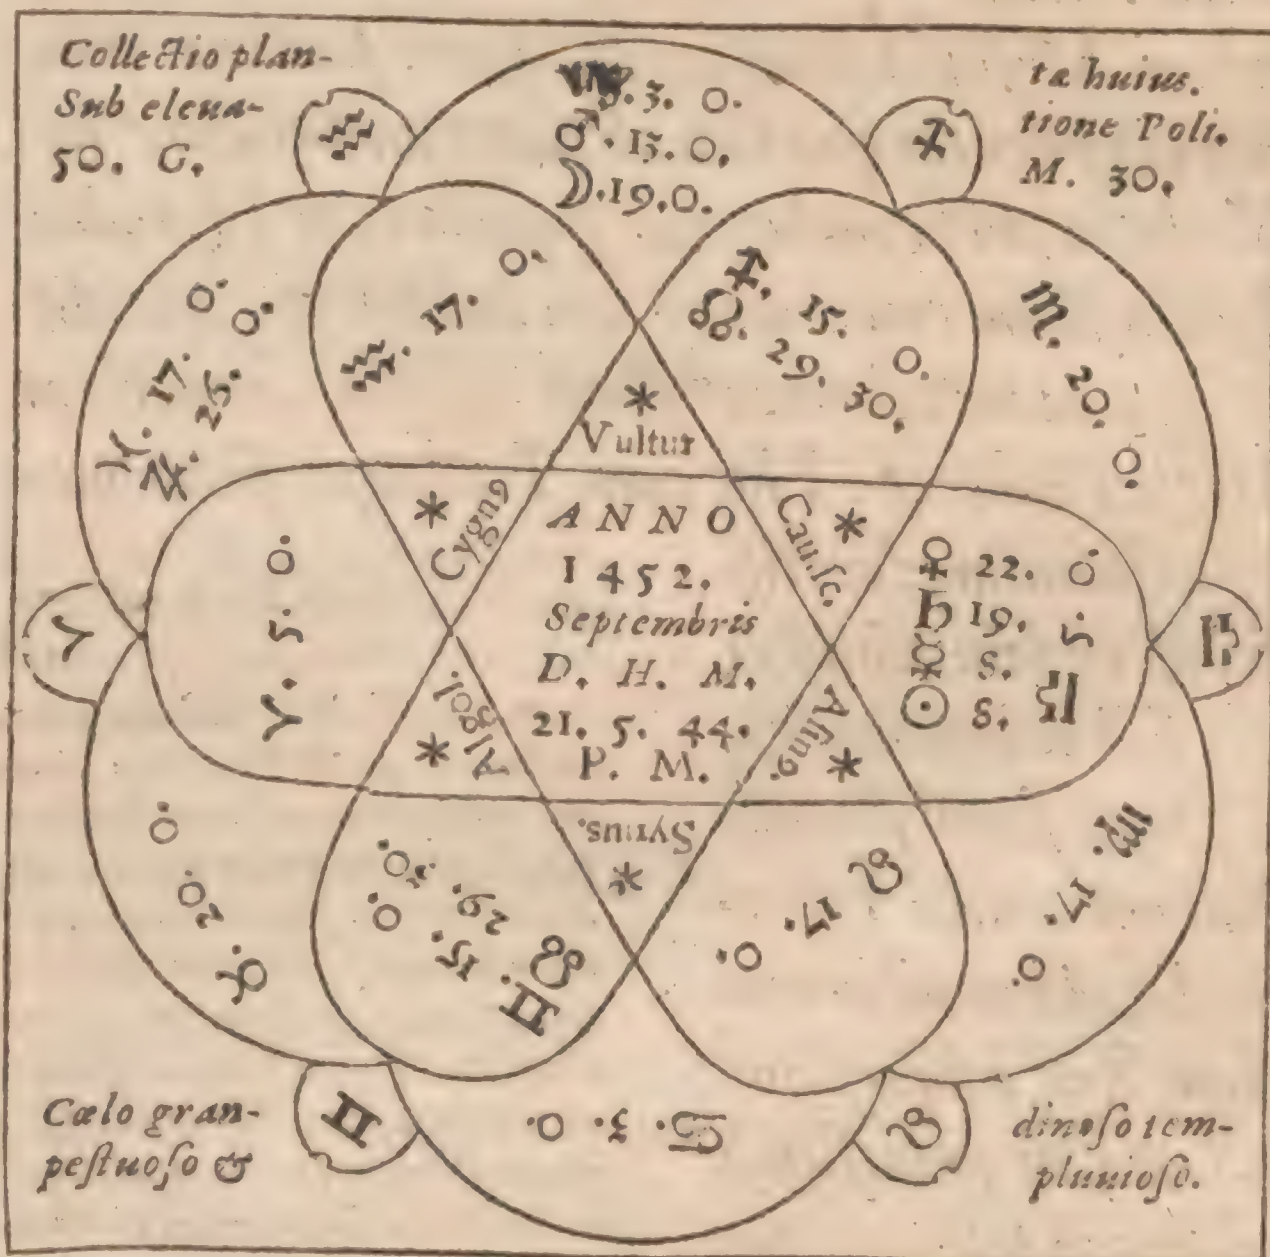 Collectio plan-
Sub eleua-
50. G.
tæ huius.
tione Poli.
M. 30.
♒
♐
3. 0.
♂. 15. 0.
☽. 19. 0.
♒. 17. 0.
♐. 15. 0.
☊. 29. 30.
♓. 17. 0.
♃. 26. 0.
♏. 20. 0.
* Vultur
* Cygnꝰ
* Cau.ſc.
ANNO
1452.
Septembris
D. H. M.
21. 5. 44.
P. M.
♈
♈. 5. 0.
♀ 22. 0.
♄ 19. 5.
☿ S.
☉ S. ♎
♎
* Algol.
* Aſinꝰ.
* Syrius.
♉. 20. 0.
☋. 29. 30.
♊. 15. 0.
♌ 17. 0.
♍. 17. 0.
♊
♋. 3. 0.
♌
Cælo gran-
peſtuoſo &
dinoſo tem-
pluuioſo.